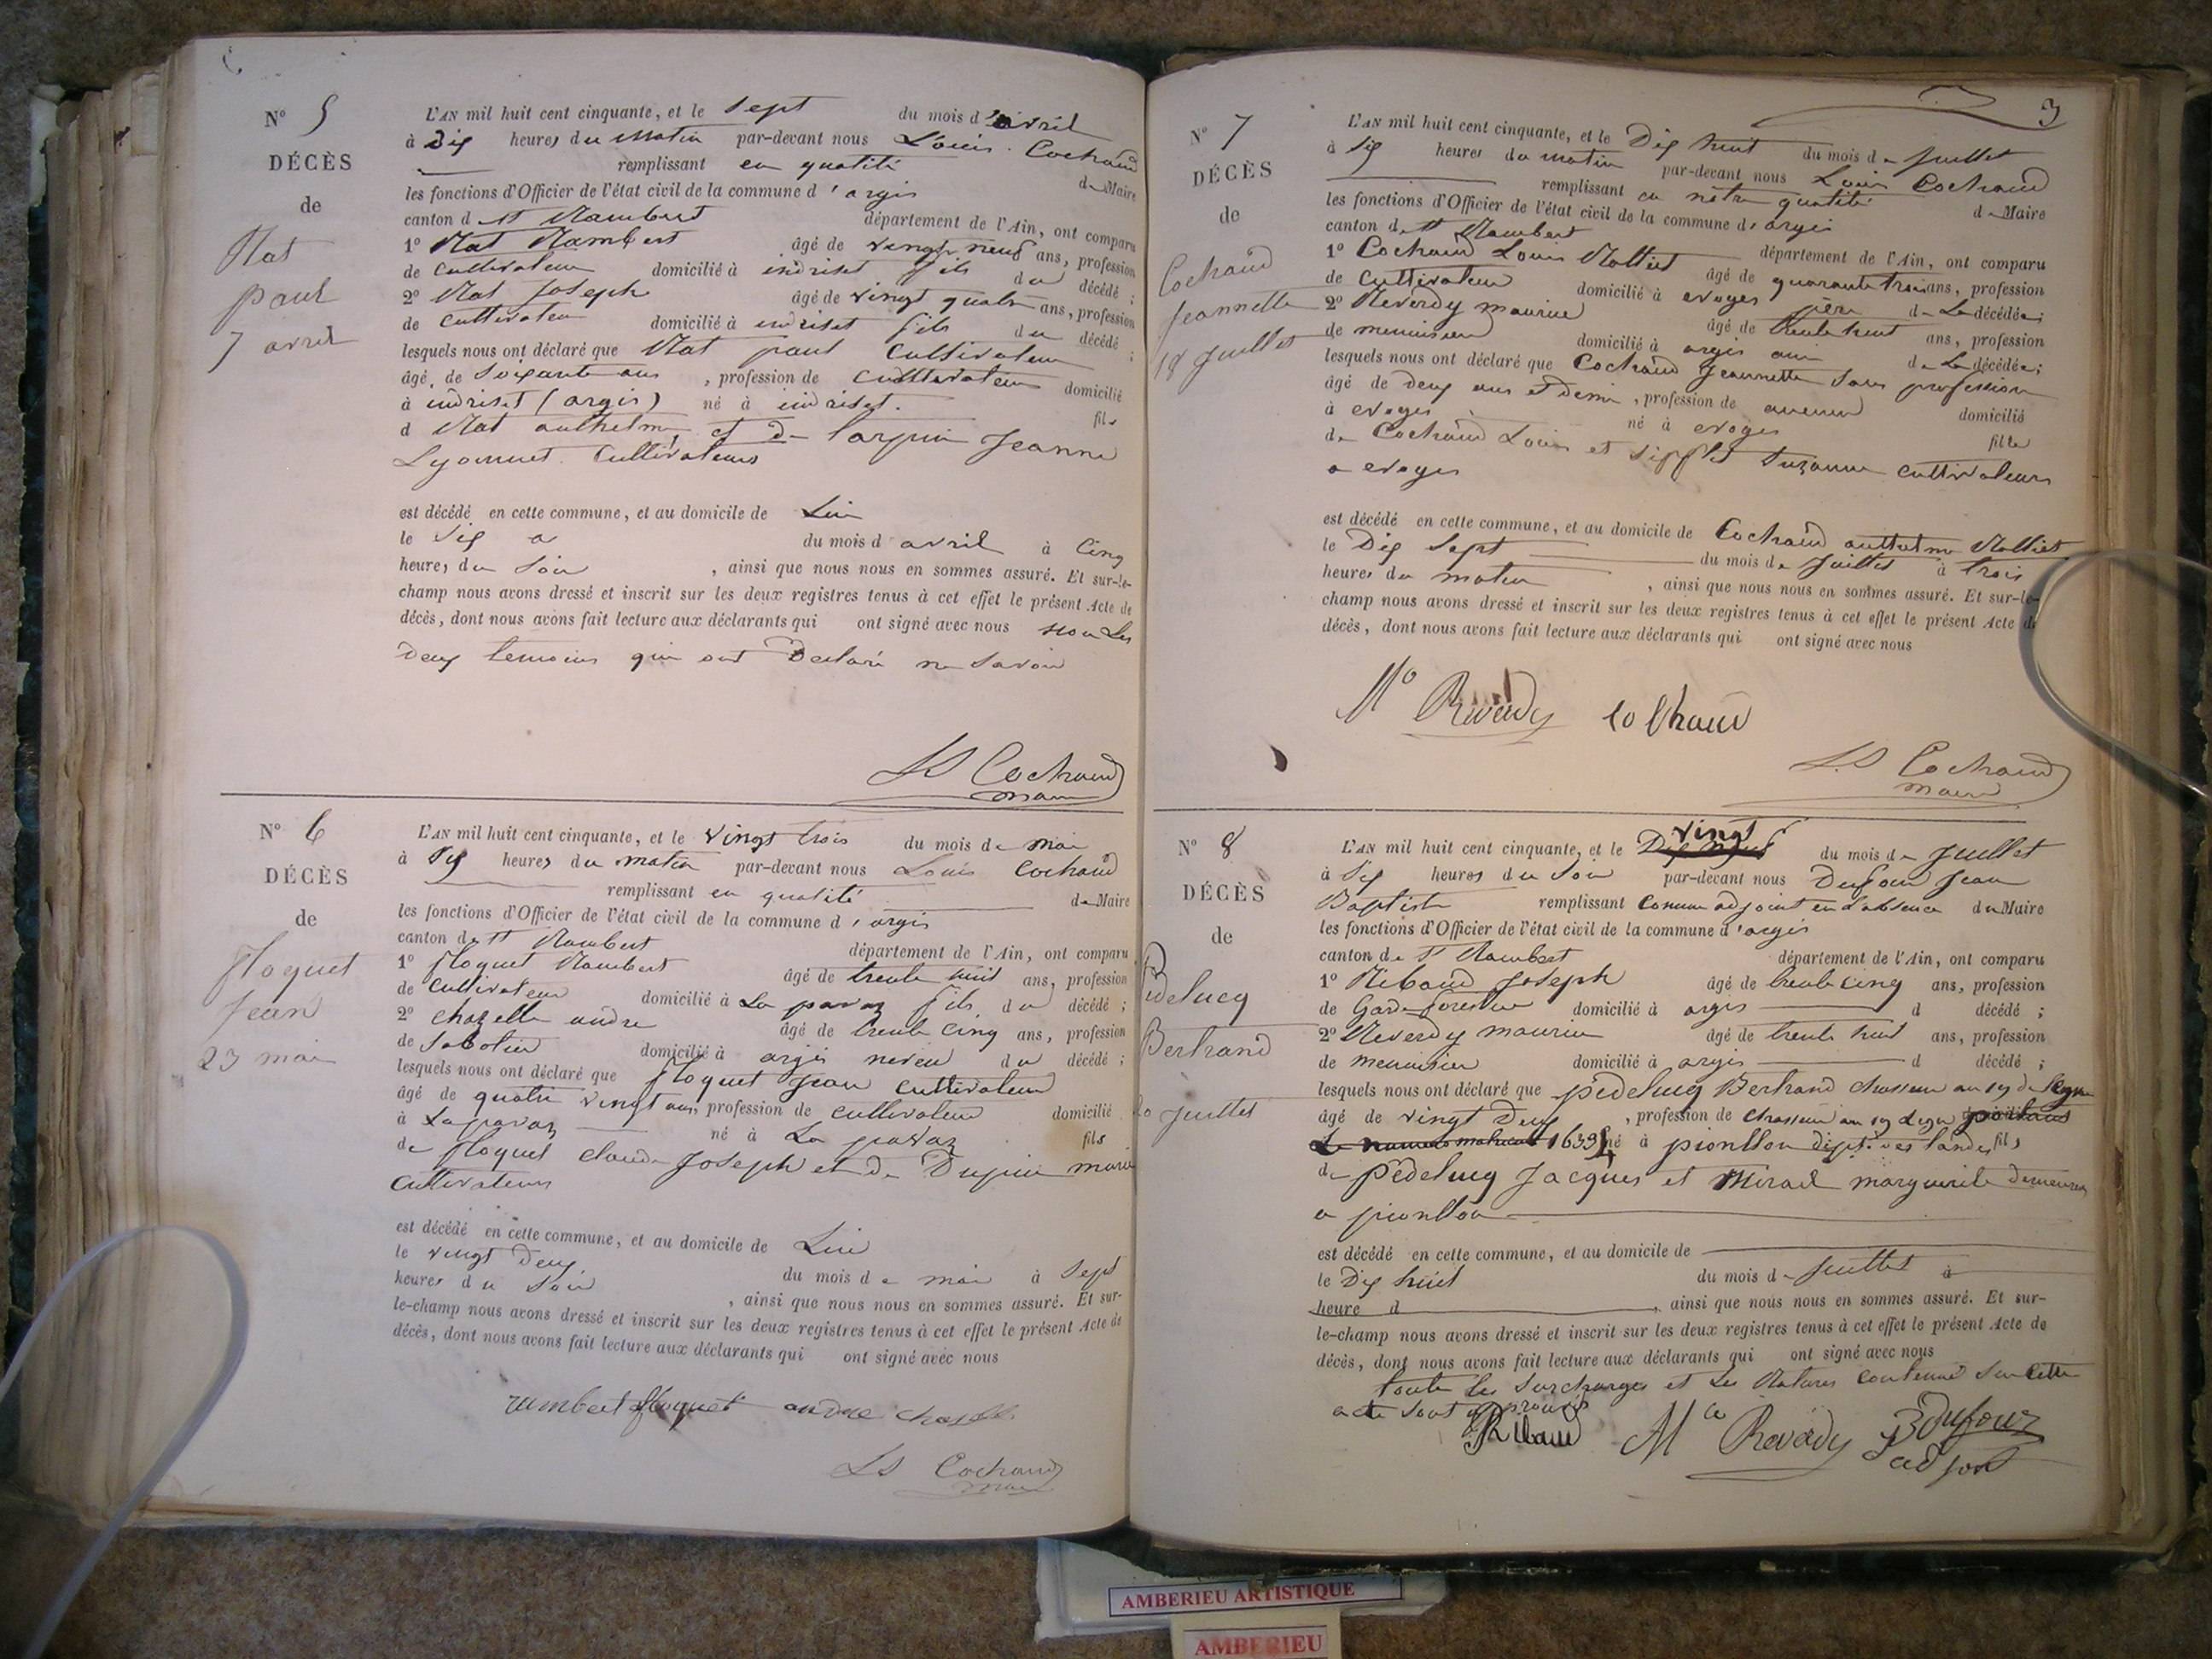 N° 5
DÉCÈS
de
Nat
paul
7 avril
L'AN mil huit cent cinquante, et le Sept du mois d'avril
à Dix heures du Matin par-devant nous Louis Cochaud
remplissant en qualité de Maire
les fonctions d'Officier de l'état civil de la commune d'argis
canton de St Rambert département de l'Ain, ont comparu
1° Nat Rambert âgé de vingt neuf ans, profession
de cultivateur domicilié à indriset fils du décédé ;
2° Nat Joseph âgé de vingt quatre ans, profession
de cultivateur domicilié à indriset fils du décédé ;
lesquels nous ont déclaré que Nat paul Cultivateur
âgé de Soixante ans, profession de cultivateur domicilié
à indriset (argis) né à indriset. fils
d Nat anthelme et de Jeanne
Lyonnet Cultivateurs
est décédé en cette commune, et au domicile de Lui
le Six a du mois d avril à Cinq
heures du Soir, ainsi que nous nous en sommes assuré. Et sur-le-
champ nous avons dressé et inscrit sur les deux registres tenus à cet effet le présent Acte de
décès, dont nous avons fait lecture aux déclarants qui ont signé avec nous non Les
Deux temoins qui ont Déclaré ne Savoir
Ls Cochaud
maire
N° 6
DÉCÈS
de
floquet
Jean
23 mai
L'AN mil huit cent cinquante, et le vingt trois du mois de mai
à heures du matin par-devant nous Louis Cochaud
remplissant en qualité de Maire
les fonctions d'Officier de l'état civil de la commune d'argis
canton de St Rambert département de l'Ain, ont comparu
1° floquet Rambert âgé de trente huit ans, profession
de Cultivateur domicilié à La pavaz fils du décédé ;
2° chazelle andre âgé de trente cinq ans, profession
de Sabotier domicilié à argis neveu du décédé ;
lesquels nous ont déclaré que floquet Jean cultivateur
âgé de quatre vingt ans, profession de cultivateur domicilié
à Lapavaz né à La pavaz fils
de floquet claude Joseph et de Dupuis marie
cultivateurs
est décédé en cette commune, et au domicile de Lui
le vingt Deux du mois de mai à Sept
heures du Soir, ainsi que nous nous en sommes assuré. Et sur-
le-champ nous avons dressé et inscrit sur les deux registres tenus à cet effet le présent Acte de
décès, dont nous avons fait lecture aux déclarants qui ont signé avec nous
rambert floquet andre chaselle
Ls Cochaud
maire
3
N° 7
DÉCÈS
de
Cochaud
Jeannette
18 Juillet
L'AN mil huit cent cinquante, et le Dix huit du mois de Juillet
à Six heures du matin par-devant nous Louis Cochaud
remplissant en nôtre qualité de Maire
les fonctions d'Officier de l'état civil de la commune d'argis
canton de St Rambert département de l'Ain, ont comparu
1° Cochaud Louis Nolliet âgé de quarante trois ans, profession
de Cultivateur domicilié à evoges père de La décédée ;
2° Reverdy maurice âgé de trente huit ans, profession
de menuisier domicilié à argis ami de La décédée ;
lesquels nous ont déclaré que Cochaud Jeannette Sans profession
âgé de Deux ans et Demi, profession de aucune domicilié
à evoges né à evoges fille
de Cochaud Louis et Sifflet Suzanne cultivateurs
a evoges
est décédé en cette commune, et au domicile de Cochaud anthelme Nolliet
le Dix Sept du mois de Juillet à trois
heures du matin, ainsi que nous nous en sommes assuré. Et sur-le-
champ nous avons dressé et inscrit sur les deux registres tenus à cet effet le présent Acte de
décès, dont nous avons fait lecture aux déclarants qui ont signé avec nous
Mce Reverdy Cochaud
Ls Cochaud
maire
N° 8
DÉCÈS
de
Pédelucq
Bertrand
20 Juillet
vingt
L'AN mil huit cent cinquante, et le Dix neuf du mois de Juillet
à Six heures du Soir par-devant nous Dufour Jean
Baptiste remplissant comme adjoint en L'absence du Maire
les fonctions d'Officier de l'état civil de la commune d'argis
canton de St Rambert département de l'Ain, ont comparu
1° Ribaud Joseph âgé de trente cinq ans, profession
de Garde forestier domicilié à argis d décédé ;
2° Reverdy maurice âgé de trente huit ans, profession
de menuisier domicilié à argis d décédé ;
lesquels nous ont déclaré que pédelucq Bertrand chasseur au 19 de Legere
âgé de vingt Deux, profession de chasseur au 19 Leger portant
Le numero matricule né à pionllon dept. des landes fils
de pédelucq Jacques et Mirail marguerite demeurant
a pionllon
est décédé en cette commune, et au domicile de
le Dix huit du mois de Juillet à
heure d, ainsi que nous nous en sommes assuré. Et sur-
le-champ nous avons dressé et inscrit sur les deux registres tenus à cet effet le présent Acte de
décès, dont nous avons fait lecture aux déclarants qui ont signé avec nous
toute les Surcharges et Les Ratures Contenue Sur Cette
acte Sont approuvés
Ribaud Mce Reverdy JB Dufour
adjoint
AMBERIEU ARTISTIQUE
AMBERIEU